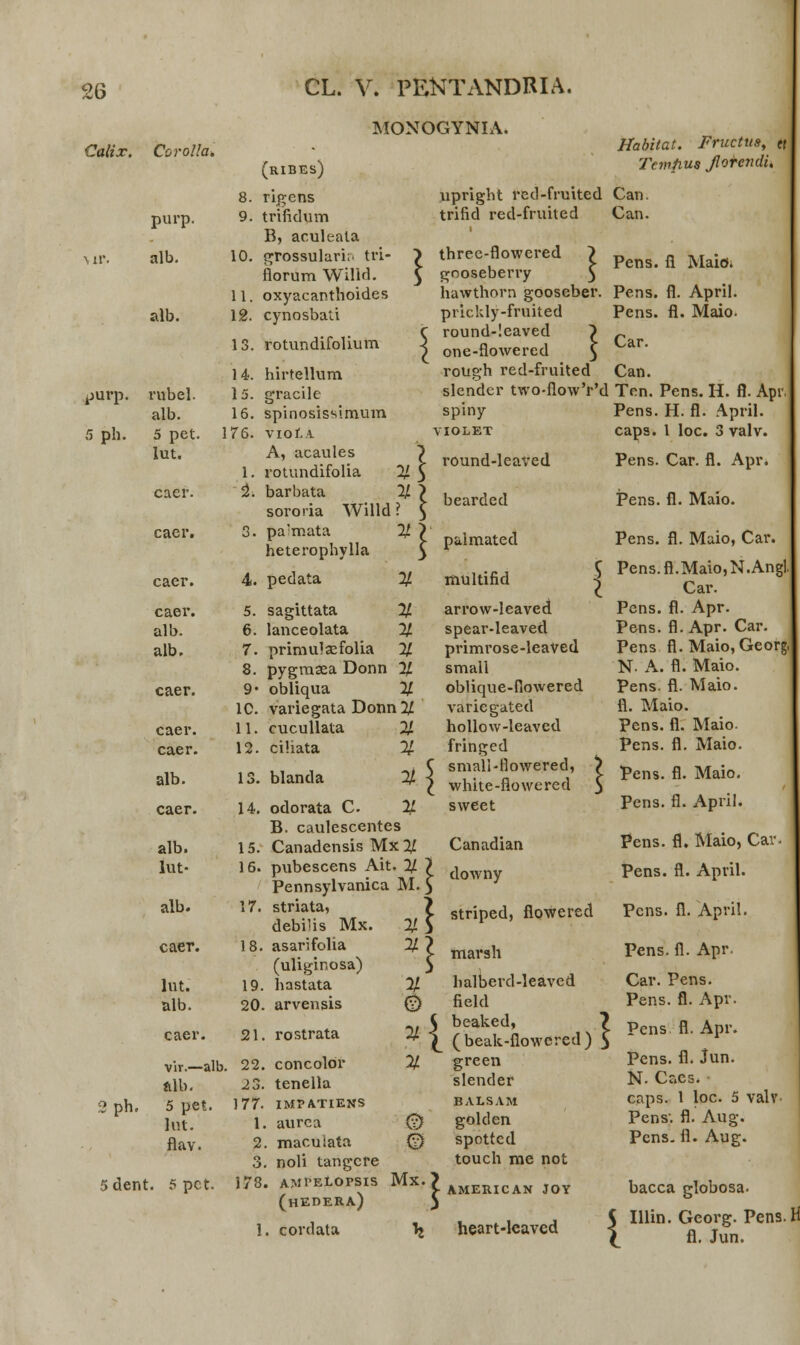 26 CL. V. PENTANDRIA.
MONOGYNIA.
Calix. Corolla. (RIBES) Habitat. Fructus, et Tempus florendi.
8. rigens upright red-fruited Can.
purp. 9. trifidum trifid red-fruited Can.
B, aculeata
vir. alb. 10. grossularia tri- } three-flowered } Pens. fl Maio.
florum Willd. } gooseberry }
11. oxyacanthoides hawthorn gooseber. Pens. fl. April.
alb. 12. cynosbati prickly-fruited Pens. fl. Maio.
13. rotundifolium { round-leaved } Car.
{ one-flowered }
14. hirtellum rough red-fruited Can.
purp. rubel. 15. gracile slender two-flow'r'd Ten. Pens. H. fl. Apr.
alb. 16. spinosissimum spiny Pens. H. fl. April.
5 ph. 5 pet. 176. VIOLA VIOLET caps. 1 loc. 3 valv.
lut. A, acaules } round-leaved Pens. Car. fl. Apr.
1. rotundifolia ♃ }
caer. 2. barbata ♃ } bearded Pens. fl. Maio.
sororia Willd? }
caer. 3. palmata ♃ } palmated Pens. fl. Maio, Car.
heterophylla }
caer. 4. pedata ♃ multifid { Pens. fl. Maio, N. Angl.
{ Car.
caer. 5. sagittata ♃ arrow-leaved Pens. fl. Apr.
alb. 6. lanceolata ♃ spear-leaved Pens. fl. Apr. Car.
alb. 7. primulæfolia ♃ primrose-leaved Pens fl. Maio, Georg.
8. pygmæa Donn ♃ small N. A. fl. Maio.
caer. 9. obliqua ♃ oblique-flowered Pens. fl. Maio.
10. variegata Donn ♃ variegated fl. Maio.
caer. 11. cucullata ♃ hollow-leaved Pens. fl. Maio.
caer. 12. ciliata ♃ fringed Pens. fl. Maio.
alb. 13. blanda ♃ { small-flowered, } Pens. fl. Maio.
{ white-flowered }
caer. 14. odorata C. ♃ sweet Pens. fl. April.
B. caulescentes
alb. 15. Canadensis Mx ♃ Canadian Pens. fl. Maio, Car.
lut. 16. pubescens Ait. ♃ } downy Pens. fl. April.
Pennsylvanica M. }
alb. 17. striata, } striped, flowered Pens. fl. April.
debilis Mx. ♃ }
caer. 18. asarifolia ♃ } marsh Pens. fl. Apr.
(uliginosa) }
lut. 19. hastata ♃ halberd-leaved Car. Pens.
alb. 20. arvensis ☉ field Pens. fl. Apr.
caer. 21. rostrata ♃ { beaked, } Pens fl. Apr.
{ (beak-flowered) }
vir.—alb. 22. concolor ♃ green Pens. fl. Jun.
alb. 23. tenella slender N. Caes.
2 ph. 5 pet. 177. IMPATIENS BALSAM caps. 1 loc. 5 valv.
lut. 1. aurea ☉ golden Pens. fl. Aug.
flav. 2. maculata ☉ spotted Pens. fl. Aug.
3. noli tangere touch me not
5 dent. 5 pet. 178. AMPELOPSIS Mx. } AMERICAN JOY bacca globosa.
(HEDERA) }
1. cordata ♄ heart-leaved { Illin. Georg. Pens. H
{ fl. Jun.